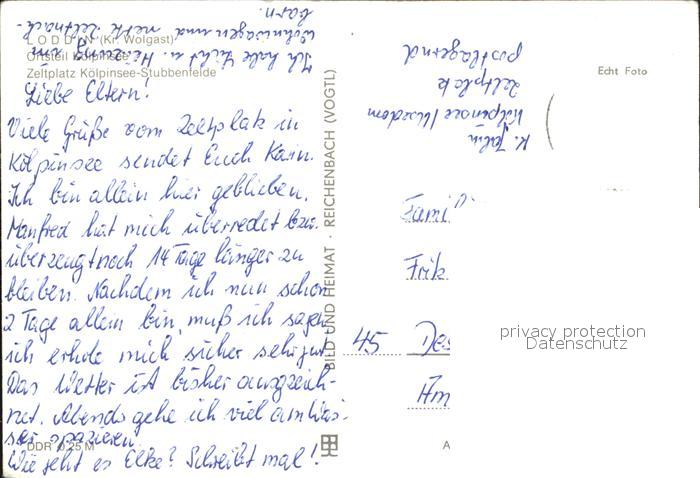 LODDIN (Kr. Wolgast)
Ortsteil Kölpinsee
Zeltplatz Kölpinsee-Stubbenfelde
Liebe Eltern!
Viele Grüße vom Zeltplatz in
Kölpinsee sendet Euch Karin.
Ich bin allein hier geblieben.
Manfred hat mich überredet bzw.
überzeugt noch 14 Tage länger zu
bleiben. Nachdem ich nun schon
2 Tage allein bin, muß ich sagen
ich erhole mich sicher sehr gut.
Das Wetter ist bisher ausgezeich-
net. Abends gehe ich viel am Was-
ser spazieren.
Wie geht es Elke? Schreibt mal!
Ich habe Licht u. Heizung im
Wohnwagen und nette Zeltnach-
barn.
DDR 0,25 M
BILD UND HEIMAT · REICHENBACH (VOGTL)
Echt Foto
K. Jahn
Kölpinsee/Usedom
Zeltplatz
postlagernd
Fami
Fritz
45 Des
Am
A
privacy protection
Datenschutz